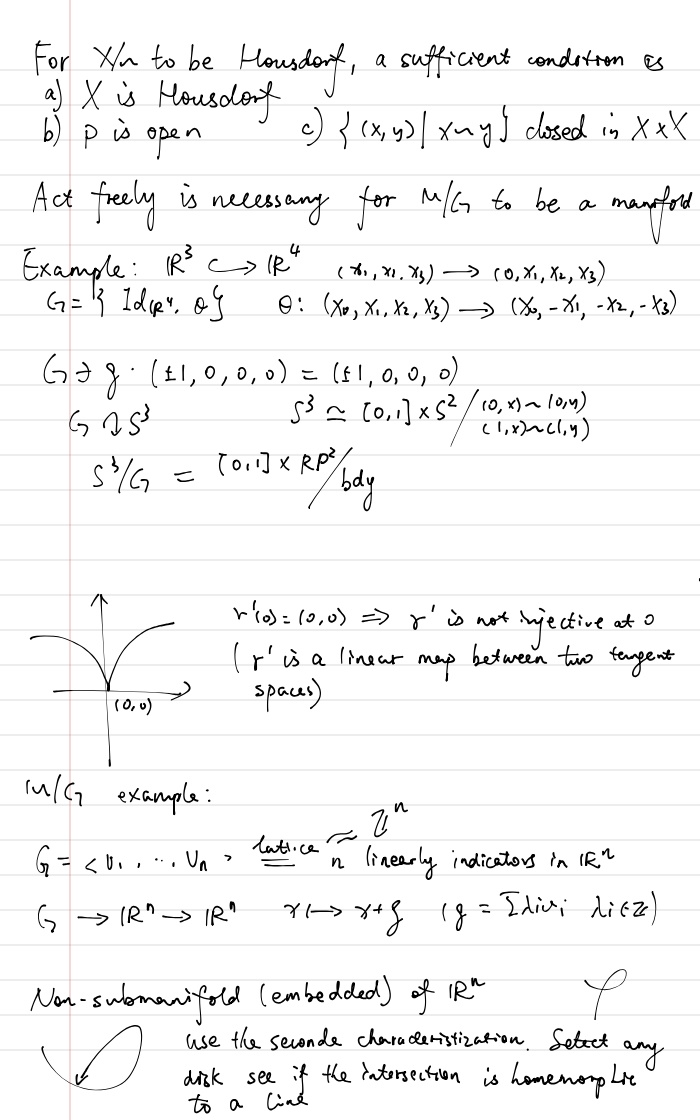 For X/~ to be Housdorf, a sufficient condition is
a) X is Housdorf
b) p is open c) { (x,y) | x~y } closed in X×X
Act freely is necessary for M/G to be a manifold
Example: ℝ³ ↪ ℝ⁴ (x₁, x₂, x₃) → (0, x₁, x₂, x₃)
G = { Id_ℝ⁴, θ } θ: (x₀, x₁, x₂, x₃) → (x₀, -x₁, -x₂, -x₃)
G ∋ g · (±1, 0, 0, 0) = (±1, 0, 0, 0)
G ↷ S³ S³ ≃ [0,1] × S² / (0,x)~(0,y)
(1,x)~(1,y)
S³/G = [0,1] × RP² / bdy
r'(0) = (0,0) ⇒ γ' is not injective at 0
( γ' is a linear map between two tangent
spaces)
(0,0)
M/G example:
G = <v₁, ... vₙ> lattice ≈ ℤⁿ
n linearly indicators in ℝⁿ
G → ℝⁿ → ℝⁿ x ↦ x+g (g = Σλivi λi∈ℤ)
Non-submanifold (embedded) of ℝⁿ
use the seconde characteristization. Select any
disk see if the intersection is homemorphic
to a line